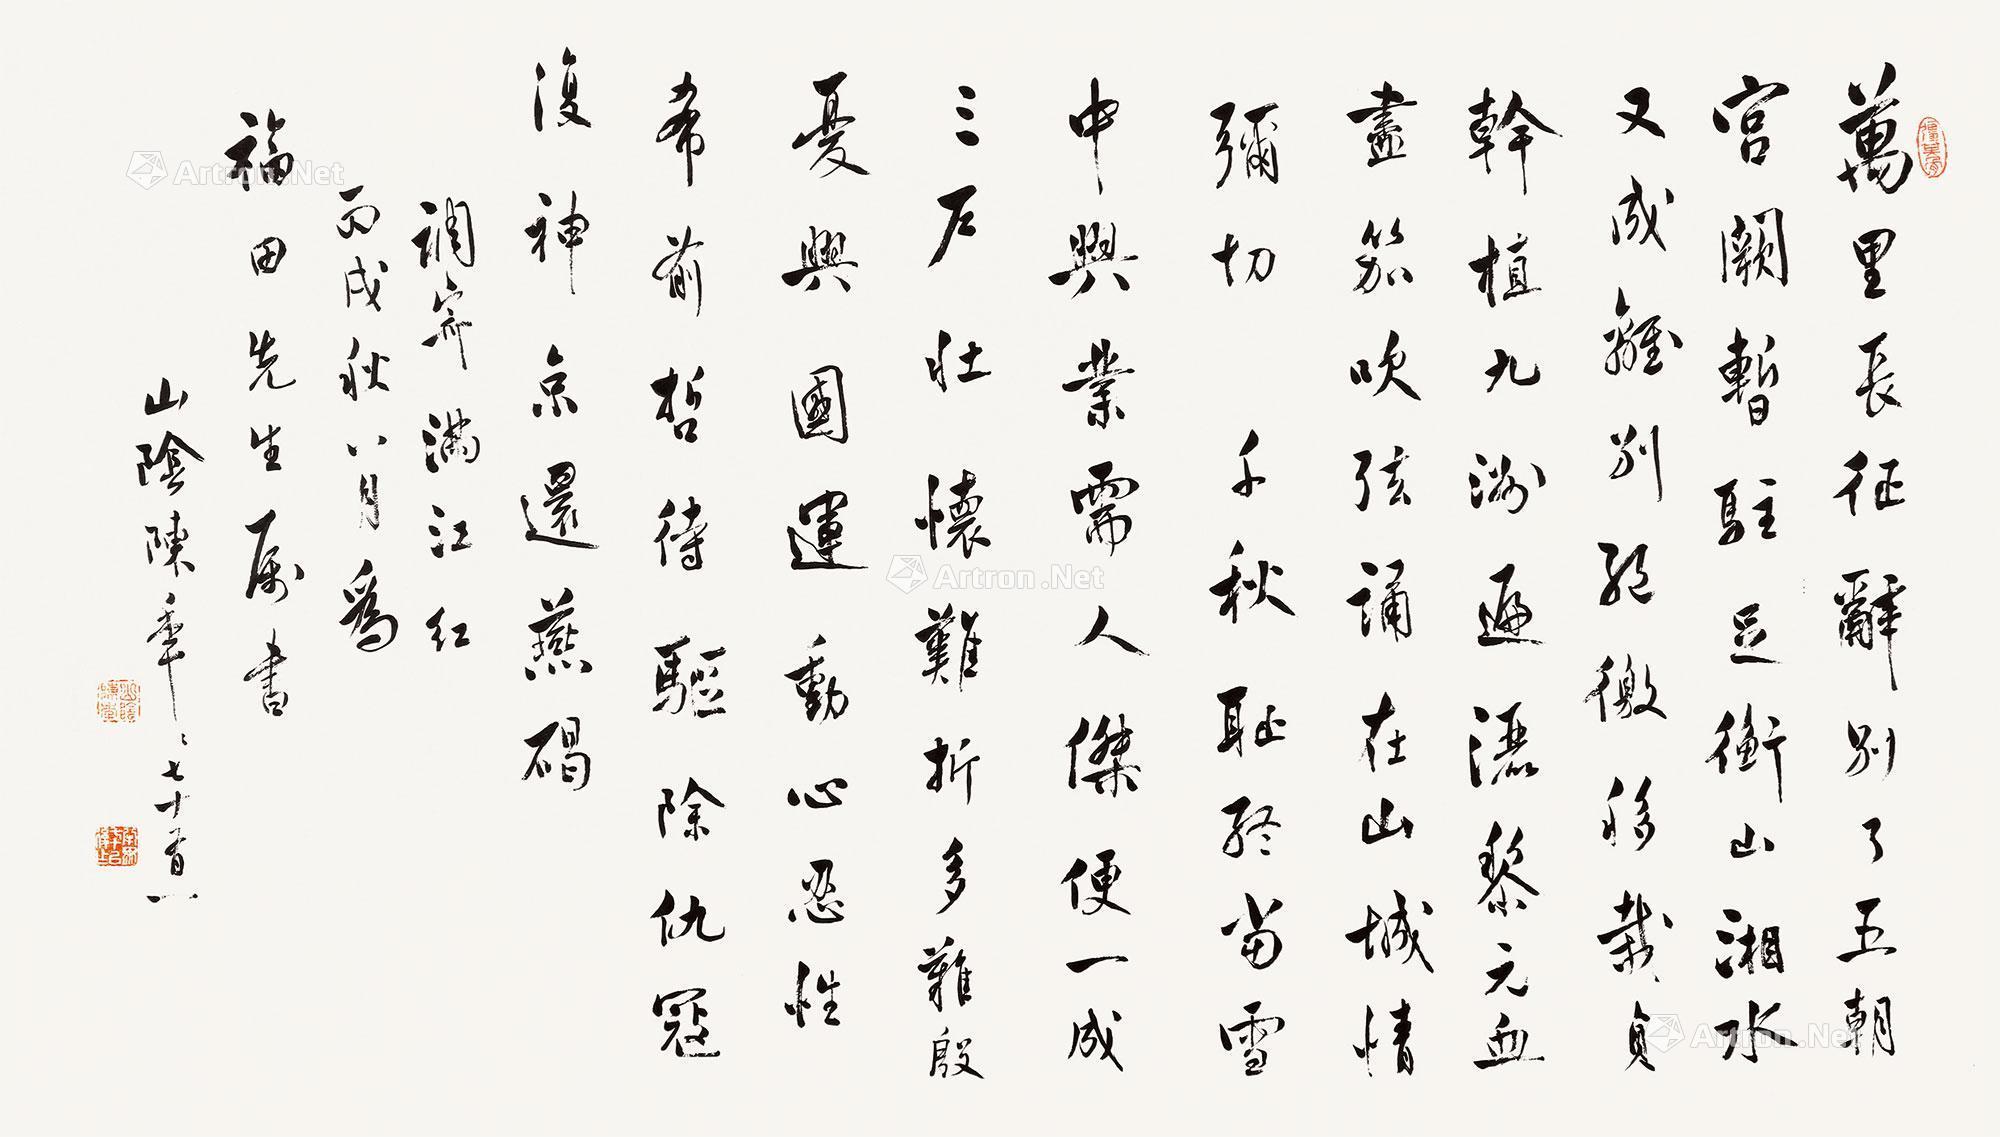 萬里長征辭別了五朝
宮闕暫駐足衡山湘水
又成離別絕徼移栽貞
幹植九洲遍灑黎元血
盡笳吹弦誦在山城情
彌切 千秋耻終當雪
中興業需人傑便一成
三戶壯懷難折多難殷
憂興國運動心忍性
希前哲待驅除仇寇
復神京還燕碣
調寄滿江紅
丙戌秋八月為
福田先生屬書
山陰陳年七十有一
Artron.Net
Artron.Net
Artron.Net